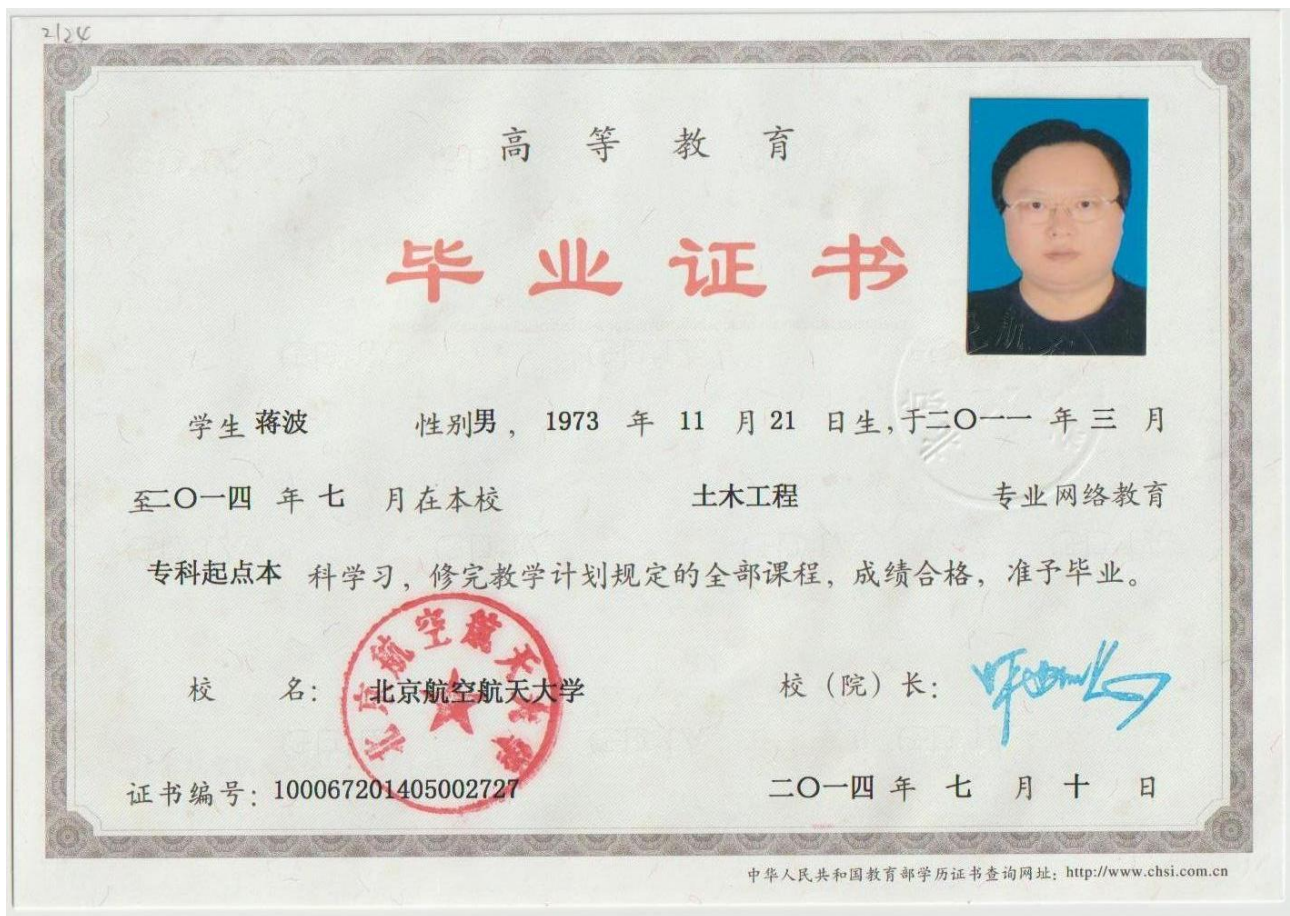 2124
高等教育
毕业证书
学生 蒋波 性别男，1973 年 11 月 21 日生，于二〇一一 年 三 月
至二〇一四 年 七 月在本校 土木工程 专业网络教育
专科起点本 科学习，修完教学计划规定的全部课程，成绩合格，准予毕业。
校 名： 北京航空航天大学 校（院）长：
北京航空航天大学
证书编号：100067201405002727 二〇一四 年 七 月 十 日
中华人民共和国教育部学历证书查询网址：http://www.chsi.com.cn